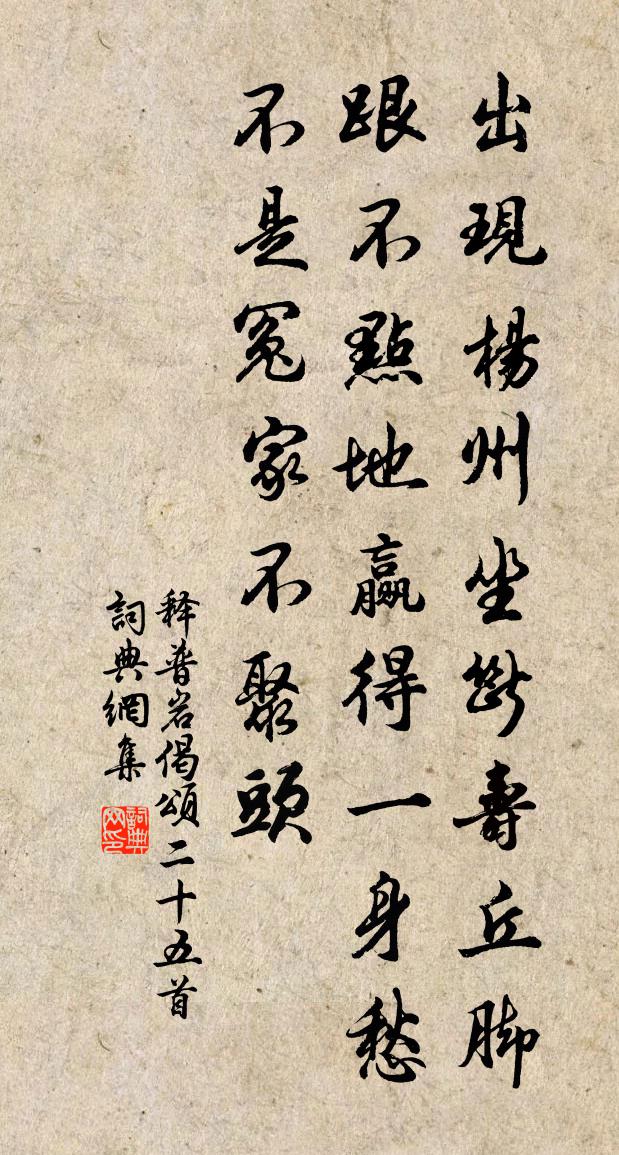 出現楊州坐斷壽丘脚
跟不點地贏得一身愁
不是冤家不聚頭
释普岩偈頌二十五首
詞典網集
詞典网印